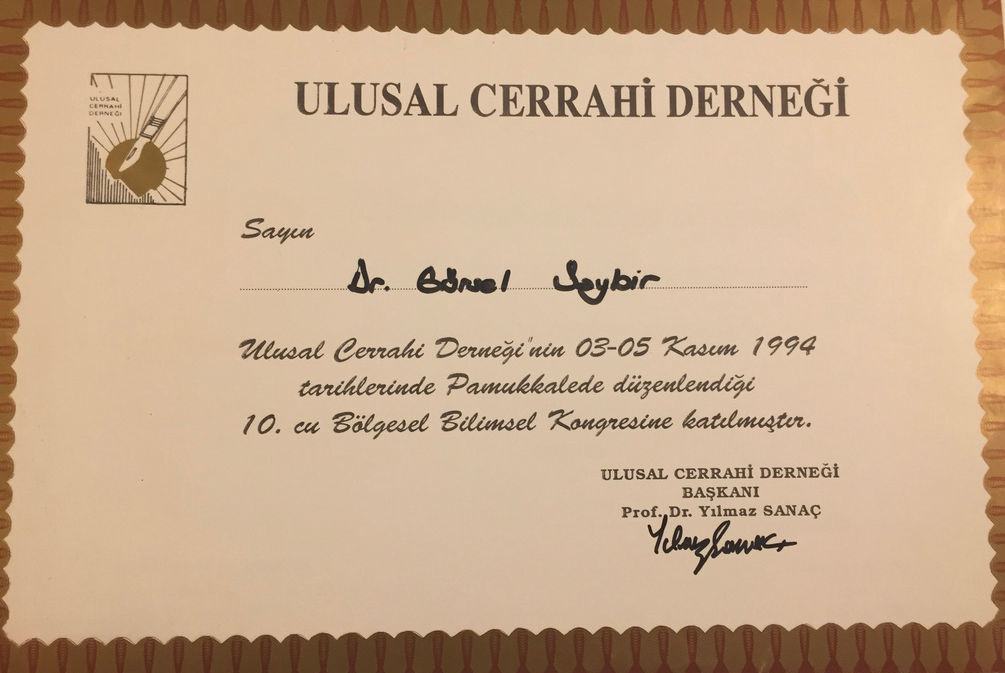 ULUSAL
CERRAHİ
DERNEĞİ
ULUSAL CERRAHİ DERNEĞİ
Sayın
Dr. Gürsel Soybir
Ulusal Cerrahi Derneği'nin 03-05 Kasım 1994
tarihlerinde Pamukkalede düzenlendiği
10. cu Bölgesel Bilimsel Kongresine katılmıştır.
ULUSAL CERRAHİ DERNEĞİ
BAŞKANI
Prof. Dr. Yılmaz SANAÇ